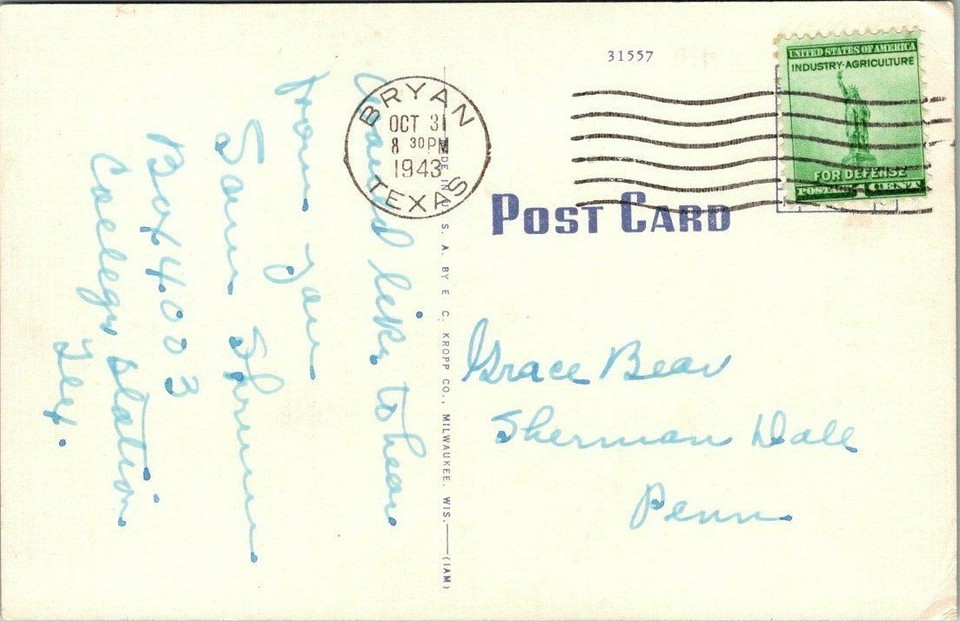 31557
UNITED STATES OF AMERICA
INDUSTRY-AGRICULTURE
FOR DEFENSE
POSTAGE 1 CENT
BRYAN
OCT 31
8 30 PM
1943
TEXAS
POST CARD
MADE IN U. S. A. BY E. C. KROPP CO., MILWAUKEE, WIS. (1AM)
would like to hear
from you
Sam
Box 4003
College Station
Tex.
Grace Bear
Sherman Dale
Penn